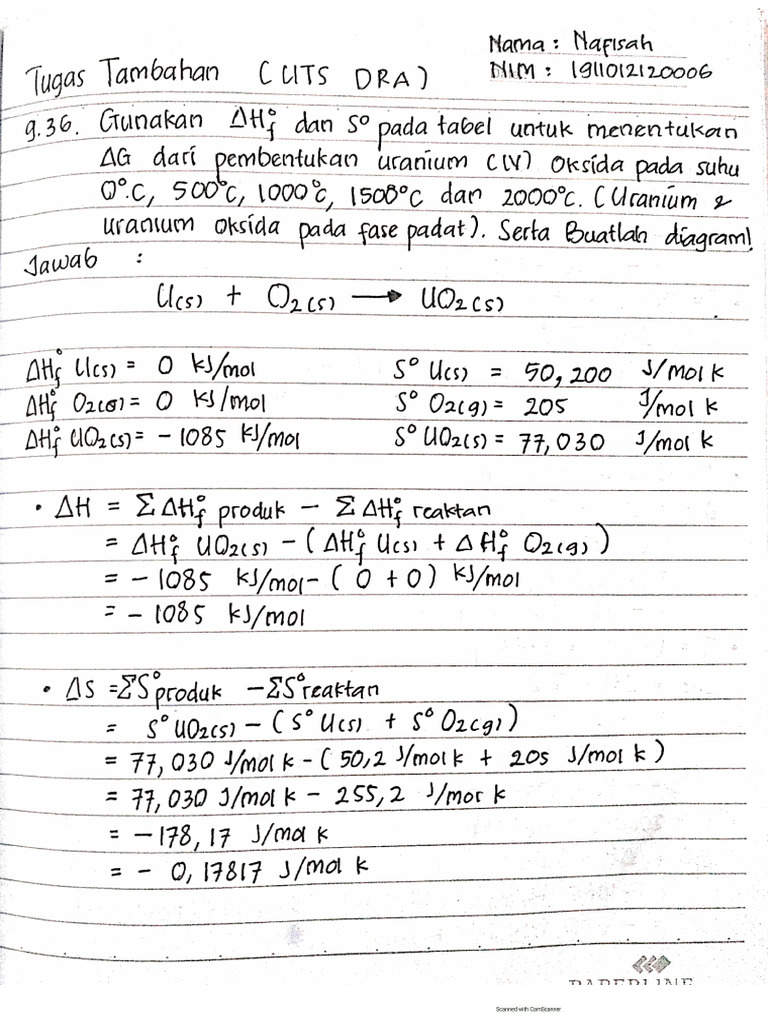 Nama : Nafisah
Tugas Tambahan (UTS DRA)
NIM : 1911012120006
9.36. Gunakan ΔH°f dan S° pada tabel untuk menentukan
ΔG dari pembentukan uranium (IV) oksida pada suhu
0°C, 500°C, 1000°C, 1500°C dan 2000°C. (Uranium &
uranium oksida pada fase padat). Serta Buatlah diagram!
Jawab :
U(s) + O2(s) → UO2(s)
ΔH°f U(s) = 0 kJ/mol S° U(s) = 50,200 J/mol k
ΔH°f O2(g) = 0 kJ/mol S° O2(g) = 205 J/mol k
ΔH°f UO2(s) = - 1085 kJ/mol S° UO2(s) = 77,030 J/mol k
• ΔH = Σ ΔH°f produk - Σ ΔH°f reaktan
= ΔH°f UO2(s) - (ΔH°f U(s) + ΔH°f O2(g))
= - 1085 kJ/mol - (0 + 0) kJ/mol
= - 1085 kJ/mol
• ΔS = ΣS° produk - ΣS° reaktan
= S° UO2(s) - (S° U(s) + S° O2(g))
= 77,030 J/mol k - (50,2 J/mol k + 205 J/mol k)
= 77,030 J/mol k - 255,2 J/mol k
= -178,17 J/mol k
= - 0,17817 J/mol k
PAPERLINE
Scanned with CamScanner